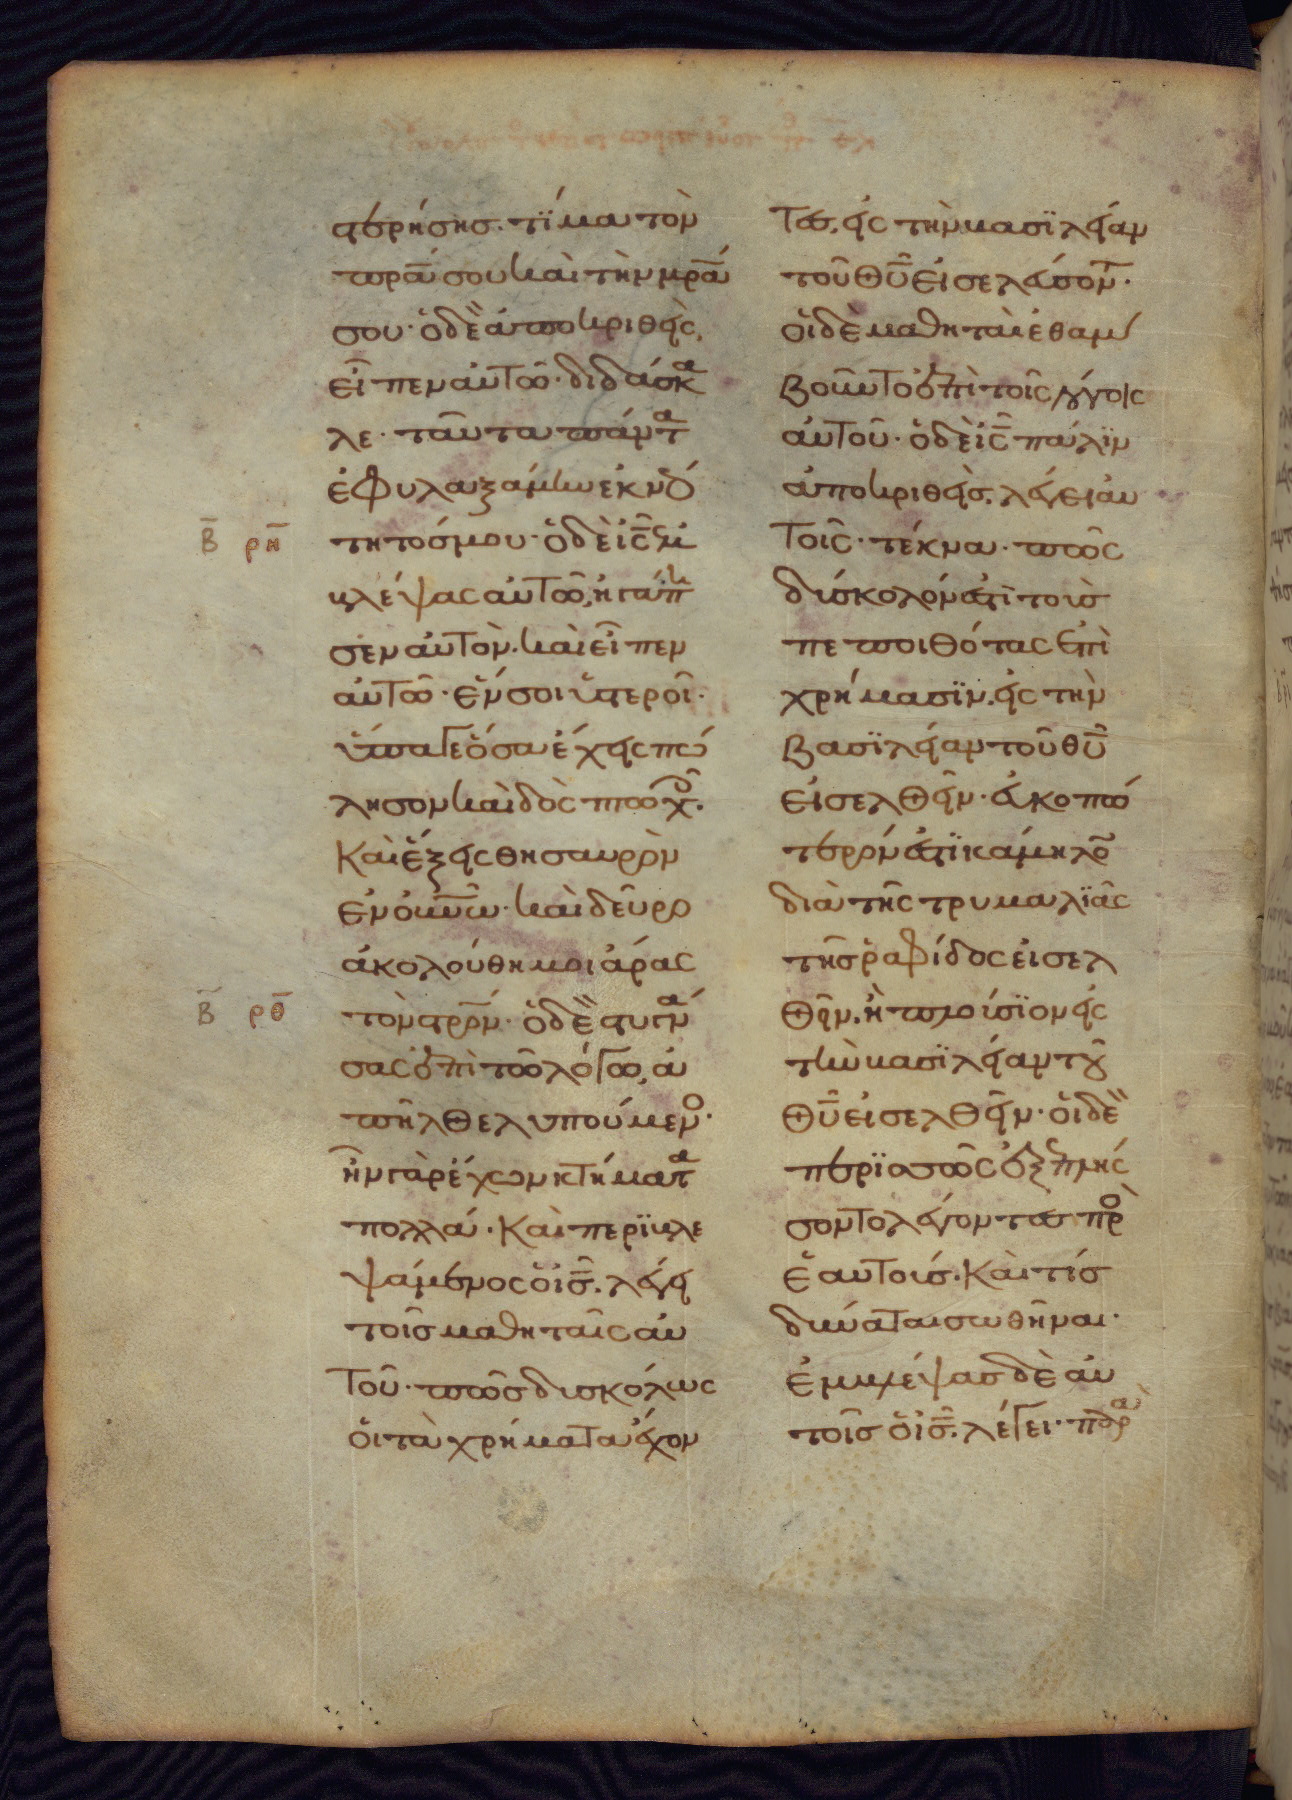 στερήσης. τΐμα τὸν
πρ̅α̅ σου καὶ τὴν μρ̅α̅
σου· ὁ δὲ ἀποκριθεὶς,
εἶπεν αὐτῶ· διδάσκα
λε· ταῦτα πάντα
ἐφυλαξάμην ἐκ νεό
β̅ ρη̅ τητόσ μου· ὁ δὲ ἰς̅ ἐμ
βλέψας αὐτῶ, ἠγάπη
σεν αὐτὸν. καὶ εἶπεν
αὐτῶ· ἕν σοι ὑστεροῖ·
ὕπαγε ὅσα ἔχεις πώ
λησον καὶ δὸς πτωχοῖ.
Καὶ ἕξεις θησαυρὸν
ἐν οὐνω̅· καὶ δεῦρο
ἀκολούθη μοι ἄρας
β̅ ρθ̅ τὸν στρο̅ν· ὁ δὲ στυγνά
σας ἐπὶ τῶ λόγω, ἀ
πῆλθε λυπούμενο·
ἦν γὰρ ἔχων κτήματα
πολλά· Καὶ περϊβλε
ψάμενος ὁ ἰς̅. λέγει
τοῖς μαθηταῖς αὐ
τοῦ· πῶς δισκόλως
οἱ τὰ χρήματα ἔχον
τες, εἰς τὴν βασϊλείαν
τοῦ θυ̅ εἰσελεύσοντ·
οἱ δὲ μαθηταὶ ἐθαμ
βοῦντο ἐπὶ τοῖς λόγοις
αὐτοῦ· ὁ δὲ ἰς̅ πάλϊν
ἀποκριθεὶς. λέγει αὐ
τοῖς· τέκνα· πῶς
δίσκολόν ἐστι τοὶς
πεποιθότας ἐπὶ
χρήμασϊν. εἰς τὴν
βασϊλείαν τοῦ θυ̅
εἰσελθεῖν· εὐκοπώ
τερόν ἐστϊ κάμηλον
διὰ τῆς τρυμαλϊᾶς
τῆς ῥαφίδος εἰσελ
θεῖν. ἢ πλούσϊον εἰς
τὴν βασϊλείαν τοῦ
θυ̅ εἰσελθεῖν· οἱ δὲ
περϊσσῶς ἐξεπλήσ
σοντο λέγοντες πρὸ
ἑαυτοὶς· Καὶ τίς
δύναται σωθῆναι·
ἐμβλέψας δὲ αὐ
τοῖς ὁ ἰς̅. λέγει· παρὰ